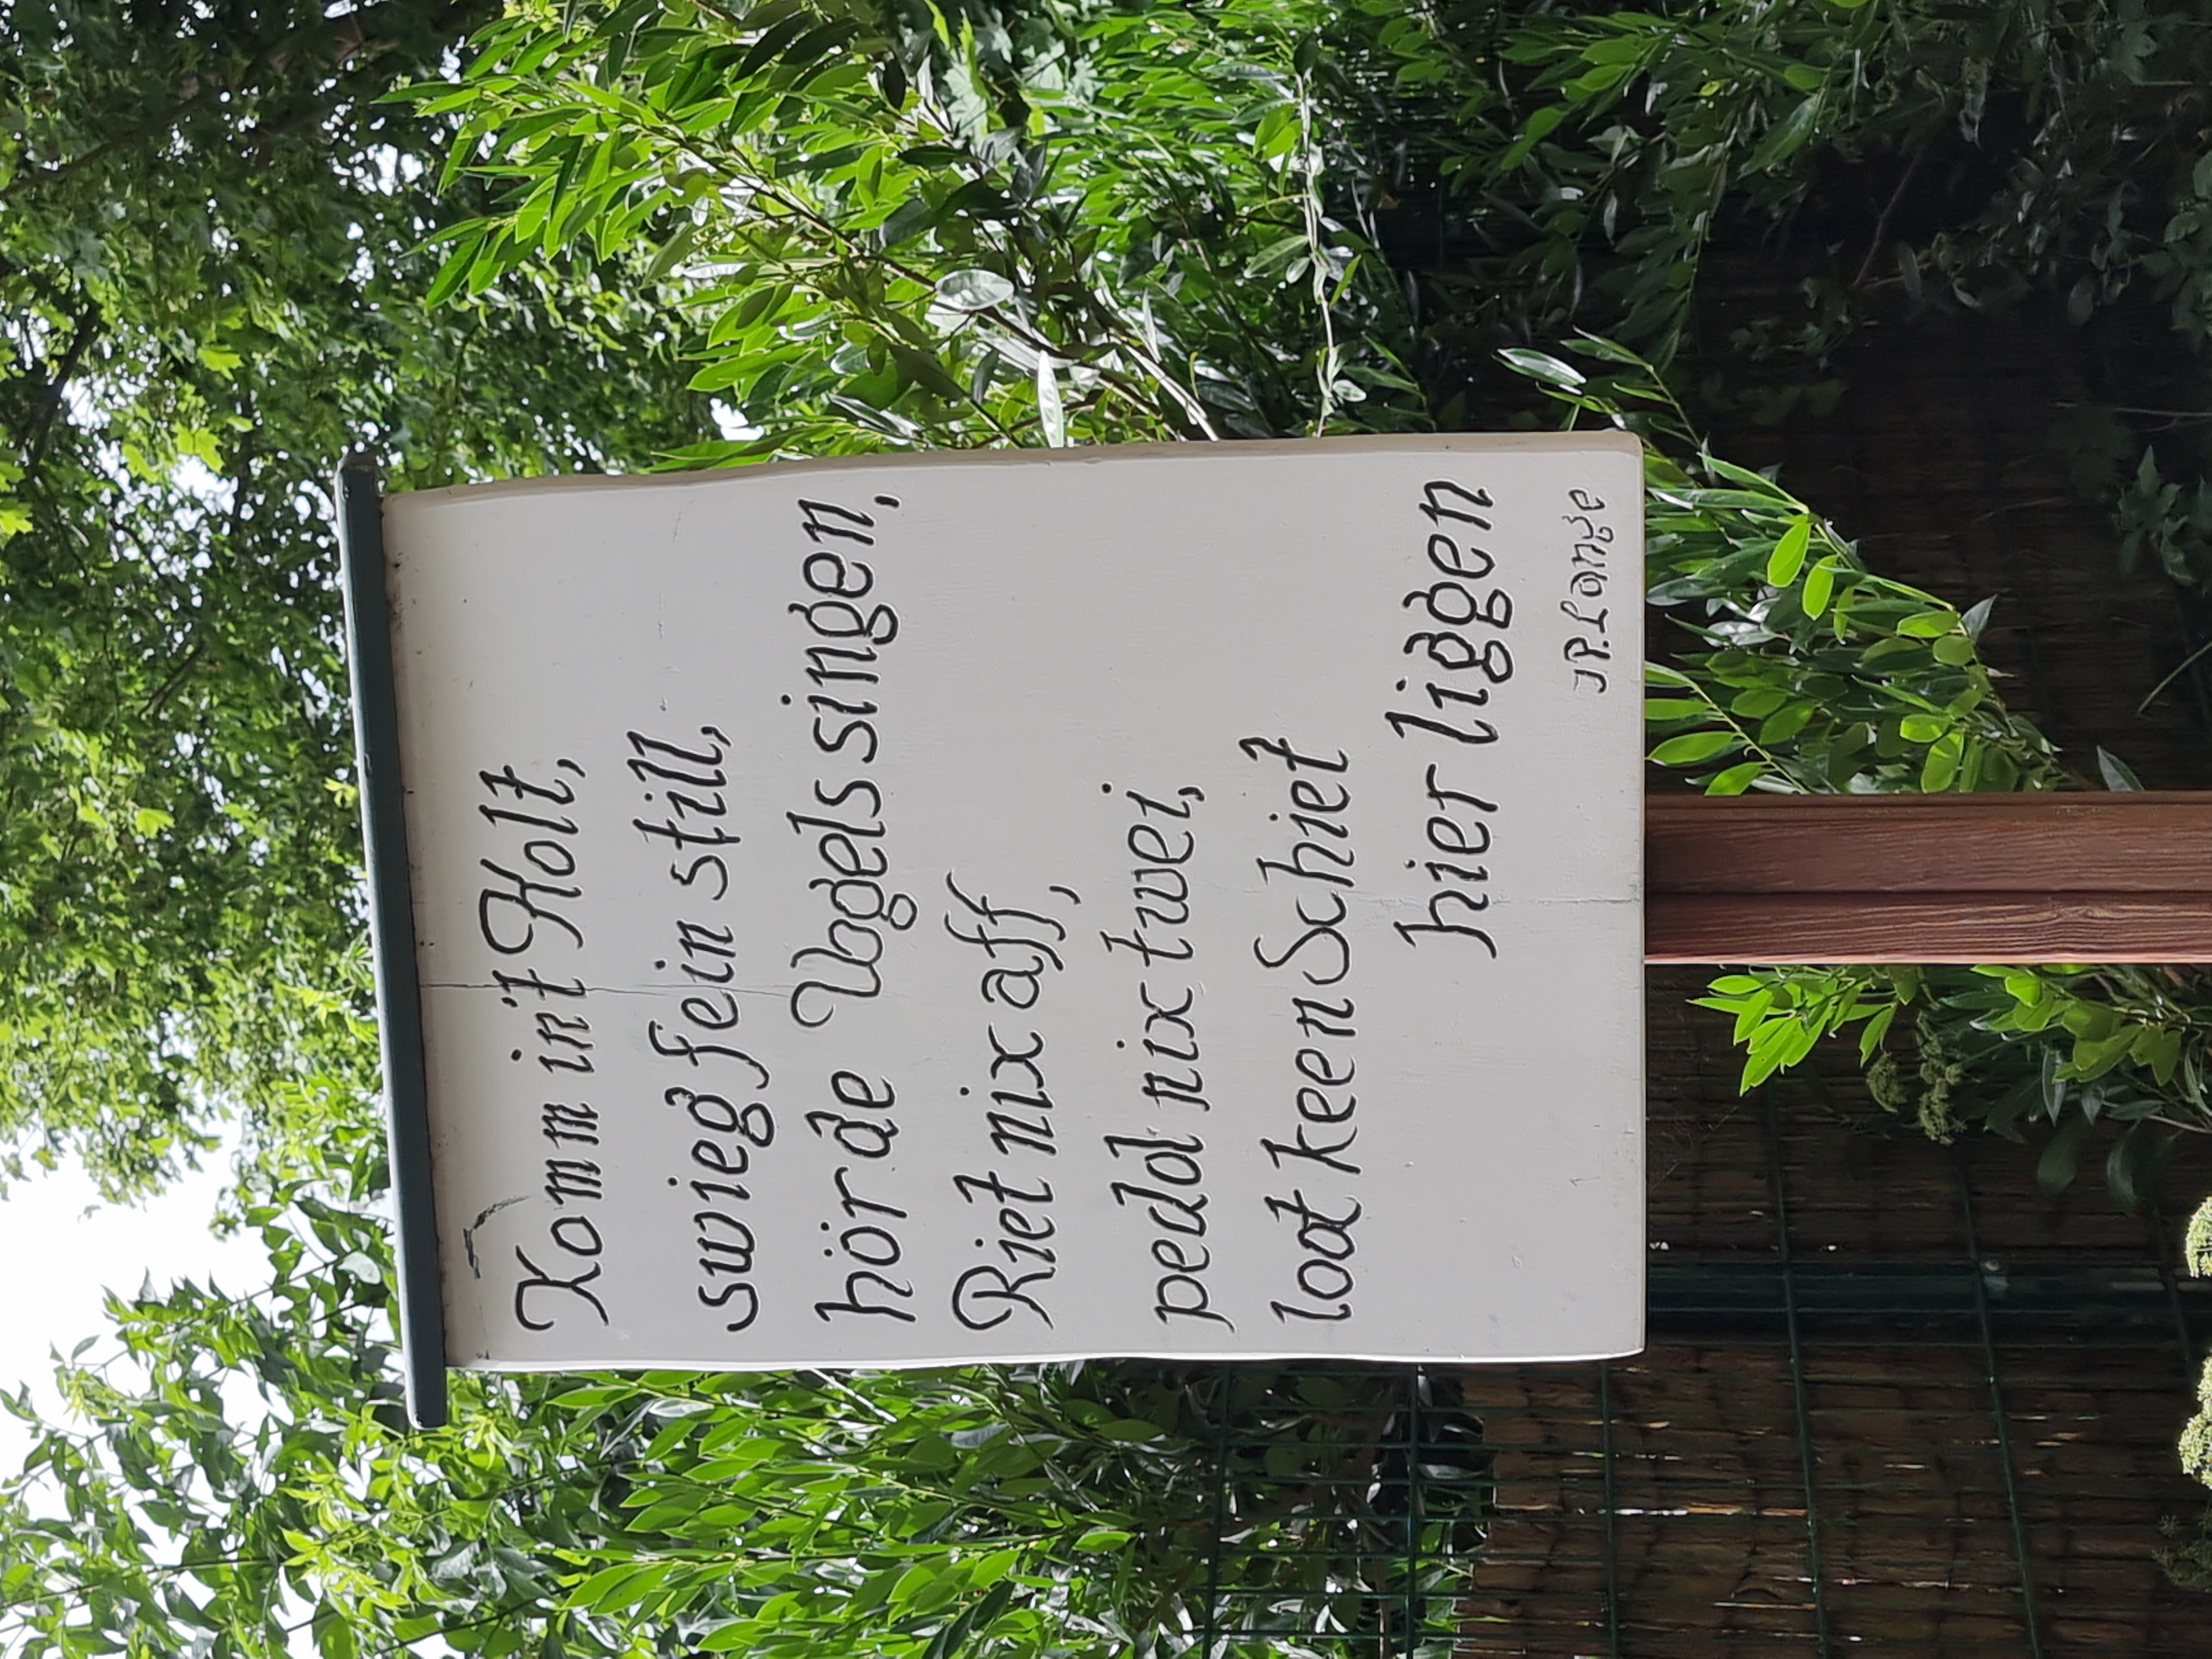 Komm in't Holt,
swieg fein still,
hör de Vogels singen,
Riet nix aff,
pedd nix twei,
loot keen Schiet
hier liggen
J.P. Lange